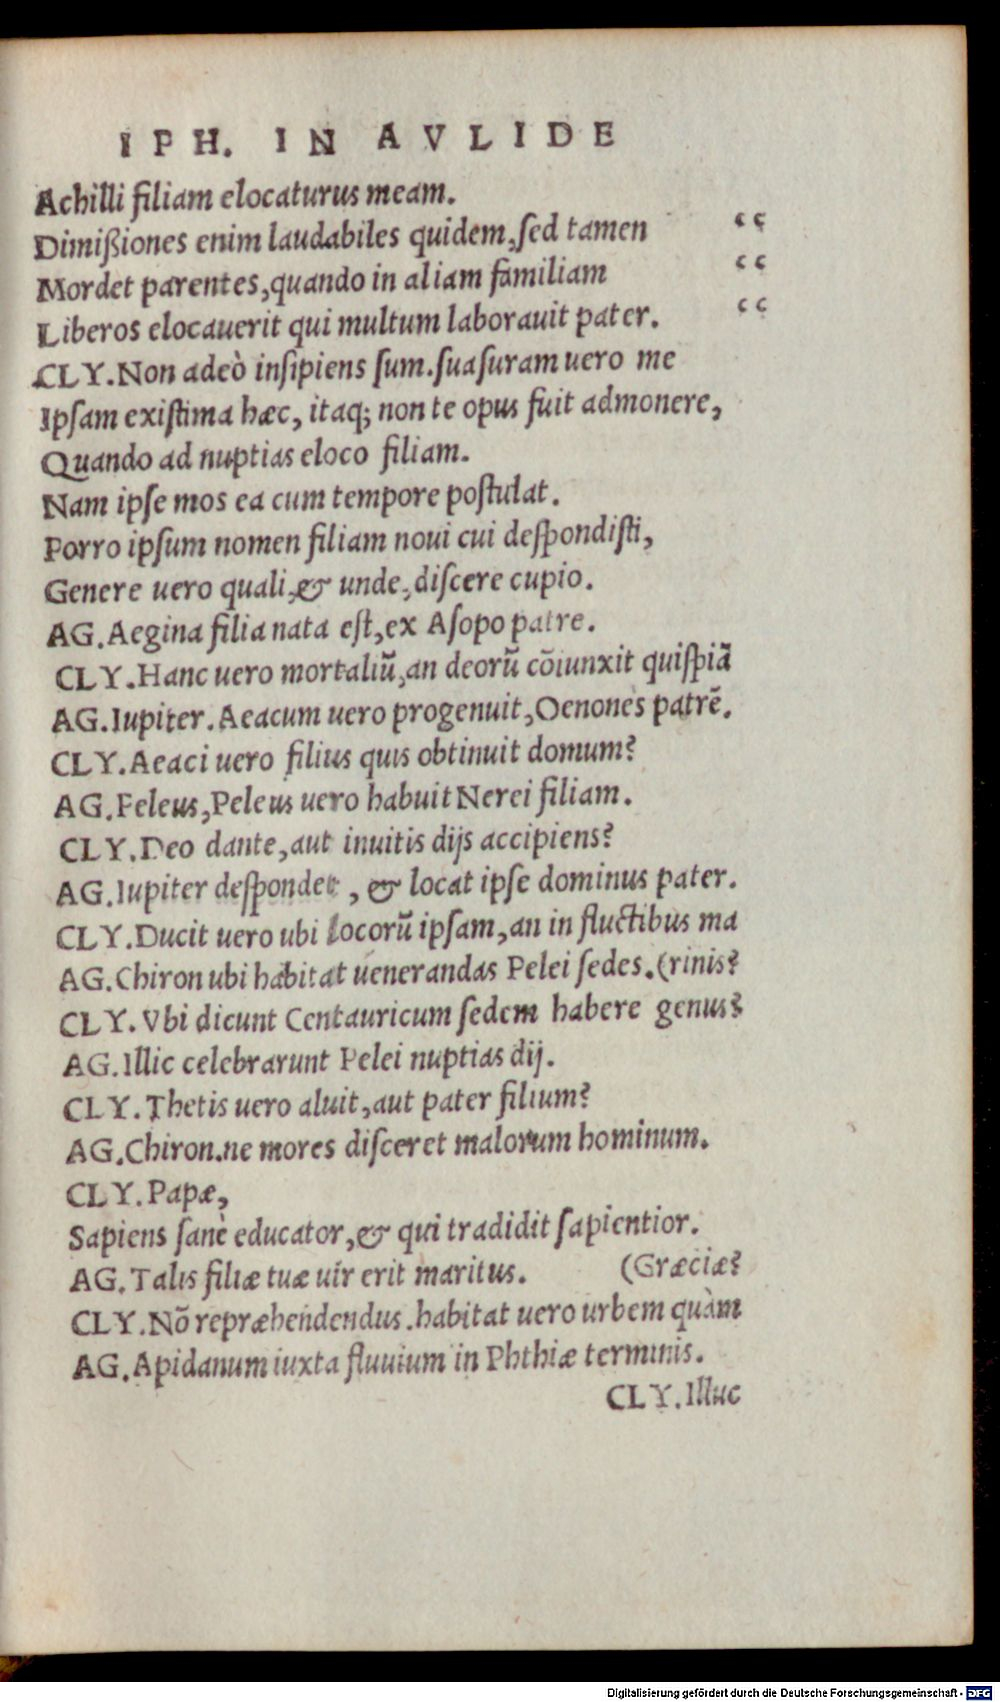 IPH. IN AVLIDE
Achilli filiam elocaturus meam.
Dimißiones enim laudabiles quidem,sed tamen “
Mordet parentes,quando in aliam familiam “
Liberos elocauerit qui multum laborauit pater. “
CLY.Non adeò insipiens sum.suasuram uero me
Ipsam existima hæc, itaq; non te opus fuit admonere,
Quando ad nuptias eloco filiam.
Nam ipse mos ea cum tempore postulat.
Porro ipsum nomen filiam noui cui despondisti,
Genere uero quali,& unde,discere cupio.
AG.Aegina filia nata est,ex Asopo patre.
CLY.Hanc uero mortaliũ,an deorũ cõiunxit quispiã
AG.Iupiter.Aeacum uero progenuit,Oenones patrẽ.
CLY.Aeaci uero filius quis obtinuit domum?
AG.Peleus,Peleus uero habuit Nerei filiam.
CLY.Deo dante,aut inuitis dijs accipiens?
AG.Iupiter despondet , & locat ipse dominus pater.
CLY.Ducit uero ubi locorũ ipsam,an in fluctibus ma
AG.Chiron ubi habitat uenerandas Pelei sedes.(rinis?
CLY.Vbi dicunt Centauricum sedem habere genus?
AG.Illic celebrarunt Pelei nuptias dij.
CLY.Thetis uero aluit,aut pater filium?
AG.Chiron.ne mores disceret malorum hominum.
CLY.Papæ,
Sapiens sanè educator,& qui tradidit sapientior.
AG.Talis filiæ tuæ uir erit maritus. (Græciæ?
CLY.Nõ repræhendendus.habitat uero urbem quàm
AG.Apidanum iuxta fluuium in Phthiæ terminis.
CLY.Illuc
Digitalisierung gefördert durch die Deutsche Forschungsgemeinschaft - DFG